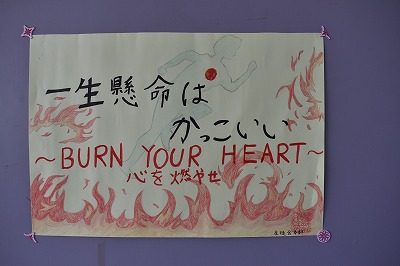 一生懸命は
かっこいい
～BURN YOUR HEART～
心を燃やせ